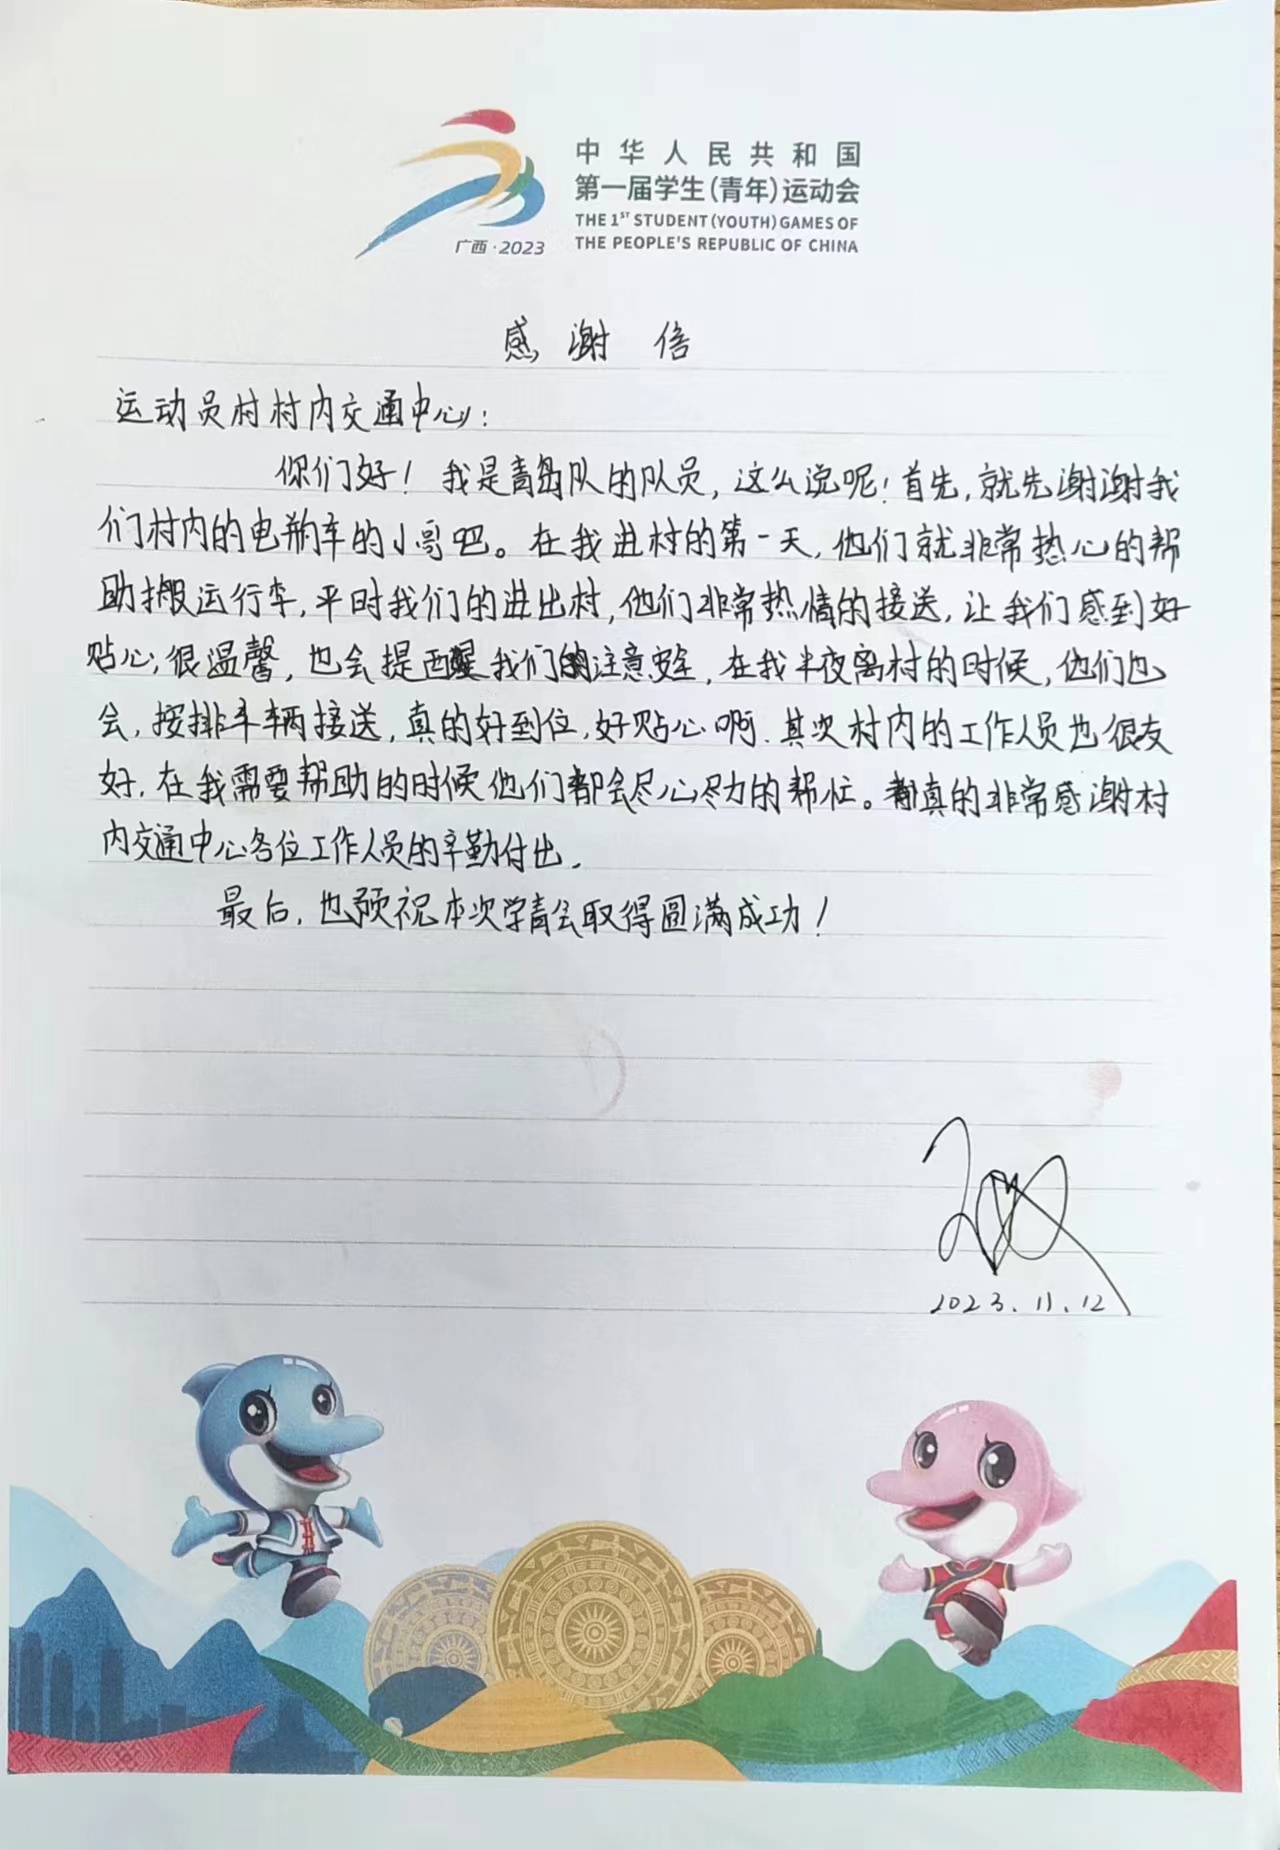 中华人民共和国
第一届学生(青年)运动会
THE 1ST STUDENT (YOUTH) GAMES OF
THE PEOPLE'S REPUBLIC OF CHINA
广西·2023
感谢信
运动员村村内交通中心:
你们好！我是青岛队的队员，这么说呢！首先，就先谢谢我
们村内的电瓶车的小哥吧。在我进村的第一天，他们就非常热心的帮
助搬运行李，平时我们的进出村，他们非常热情的接送，让我们感到好
贴心，很温馨，也会提醒我们的注意安全，在我半夜离村的时候，他们也
会，按排车辆接送，真的好到位，好贴心啊．其次村内的工作人员也很友
好．在我需要帮助的时候他们都会尽心尽力的帮忙。都真的非常感谢村
内交通中心各位工作人员的辛勤付出．
最后，也预祝本次学青会取得圆满成功！
2023.11.12